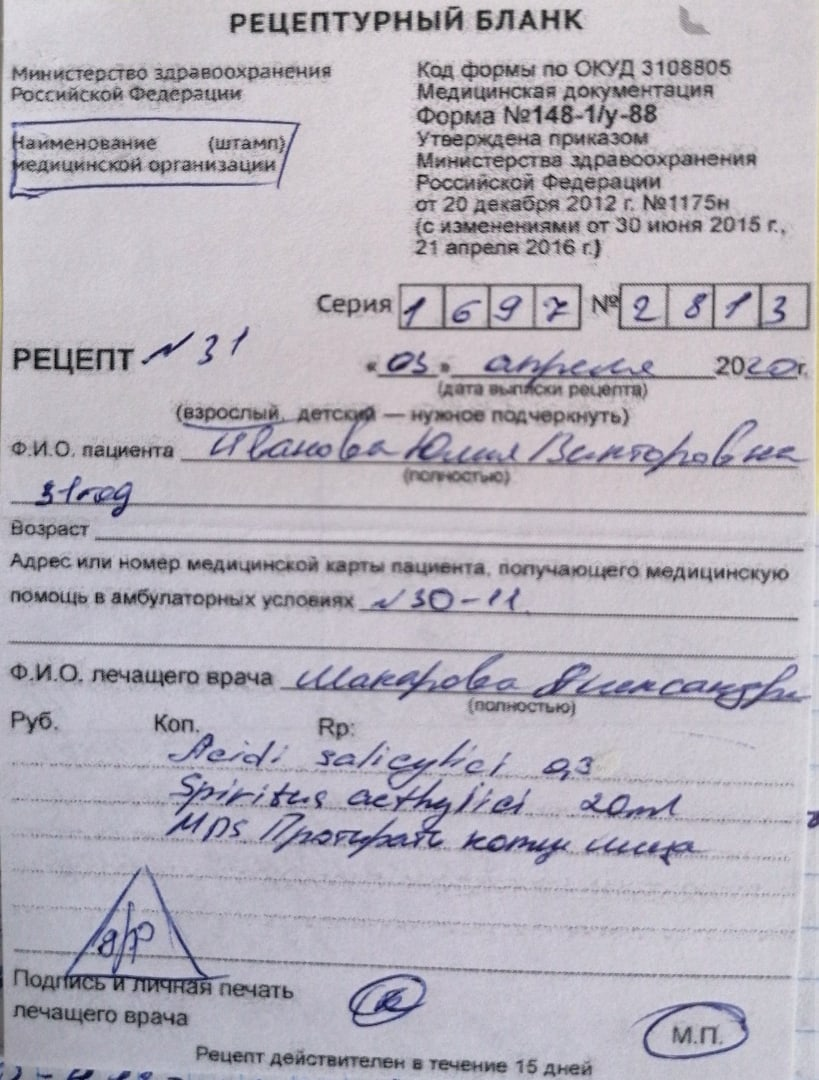 РЕЦЕПТУРНЫЙ БЛАНК
Министерство здравоохранения
Российской Федерации
Наименование (штамп)
медицинской организации
Код формы по ОКУД 3108805
Медицинская документация
Форма №148-1/у-88
Утверждена приказом
Министерства здравоохранения
Российской Федерации
от 20 декабря 2012 г. №1175н
(с изменениями от 30 июня 2015 г.,
21 апреля 2016 г.)
Серия 1697 № 2813
РЕЦЕПТ N 31
«03» апреля 2020г.
(дата выписки рецепта)
(взрослый, детский — нужное подчеркнуть)
Ф.И.О. пациента Иванова Юлия Викторовна
(полностью)
31 год
Возраст
Адрес или номер медицинской карты пациента, получающего медицинскую
помощь в амбулаторных условиях N 30-11
Ф.И.О. лечащего врача Макарова Александра
(полностью)
Руб. Коп. Rp:
Acidi salicylici 0,3
Spiritus aethylici 20ml
MDS Протирать кожу лица
Подпись и личная печать
лечащего врача
М.П.
Рецепт действителен в течение 15 дней